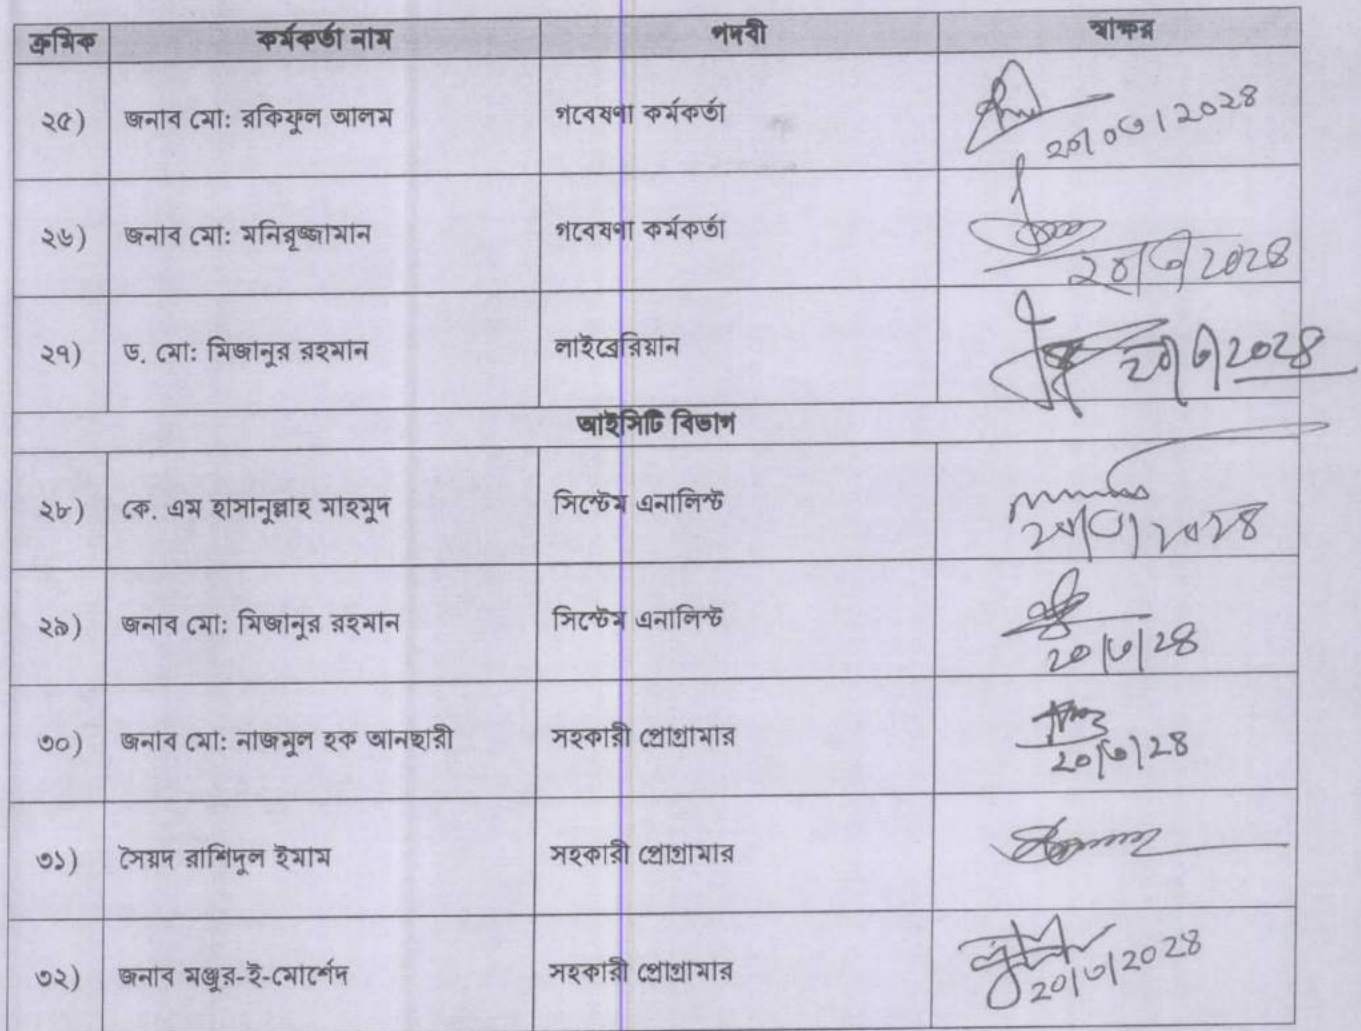 ক্রমিক কর্মকর্তা নাম পদবী স্বাক্ষর
২৫) জনাব মো: রকিফুল আলম গবেষণা কর্মকর্তা ২০/০৩/২০২৪
২৬) জনাব মো: মনিরুজ্জামান গবেষণা কর্মকর্তা ২০/৩/২০২৪
২৭) ড. মো: মিজানুর রহমান লাইব্রেরিয়ান ২০/৩/২০২৪
আইসিটি বিভাগ
২৮) কে. এম হাসানুল্লাহ মাহমুদ সিস্টেম এনালিস্ট
২৯) জনাব মো: মিজানুর রহমান সিস্টেম এনালিস্ট ২০/৩/২৪
৩০) জনাব মো: নাজমুল হক আনছারী সহকারী প্রোগ্রামার ২০/৩/২৪
৩১) সৈয়দ রাশিদুল ইমাম সহকারী প্রোগ্রামার
৩২) জনাব মঞ্জুর-ই-মোর্শেদ সহকারী প্রোগ্রামার ২০/৩/২০২৪